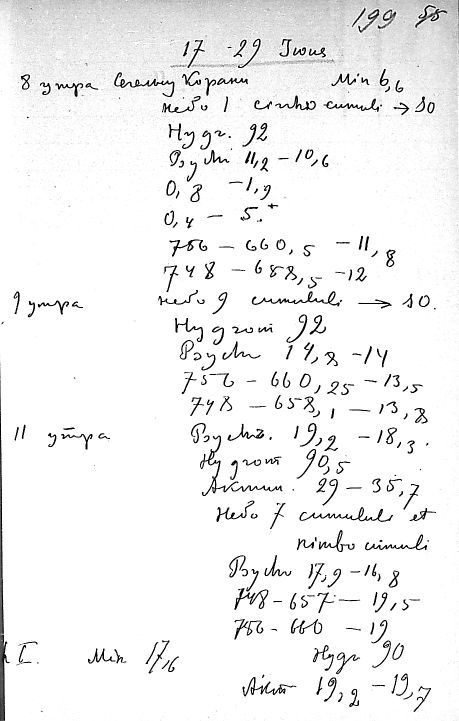 199
17 - 29 Июня
8 утра Min 6,6
Небо 1 cirrho cumuli → SO
Hygr. 92
Psychr 11,2 - 10,6
0,8 - 1,9
0,4 - 5.+
756 - 660,5 - 11,8
748 - 658,5 - 12
9 утра Небо 9 cumululi → SO.
Hygrom 92
Psychr 14,8 - 14
756 - 660,25 - 13,5
748 - 658,1 - 13,8
11 утра Psychr. 19,2 - 18,3.
Hygrom 90,5
Актин. 29 - 35,7
Небо 7 cumululi et
nimbo cumuli
Psychr 17,9 - 16,8
748 - 657 - 19,5
756 - 660 - 19
h I. Min 17,6 Hygr 90
Акт 19,2 - 19,7